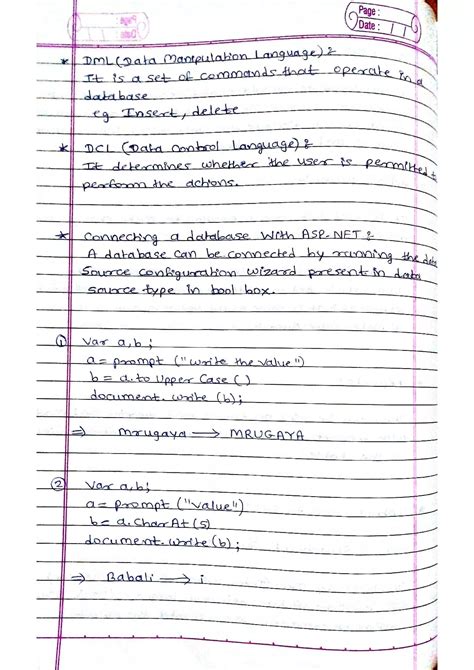 Page :
Date :
* DML (Data Manipulation Language) :
It is a set of commands that operate in a
database
eg Insert, delete
* DCL (Data Control Language) :
It determines whether the user is permitted to
perform the actions.
* Connecting a database with ASP-NET :
A database can be connected by running the data
source configuration wizard present in data
source type in tool box.
① Var a,b ;
a = prompt ("write the value")
b = a.to Upper Case ( )
document. write (b);
⇒ Mrugaya → MRUGAYA
② Var a,b;
a = prompt ("value")
b = a.charAt (5)
document. write (b);
⇒ Babali → i